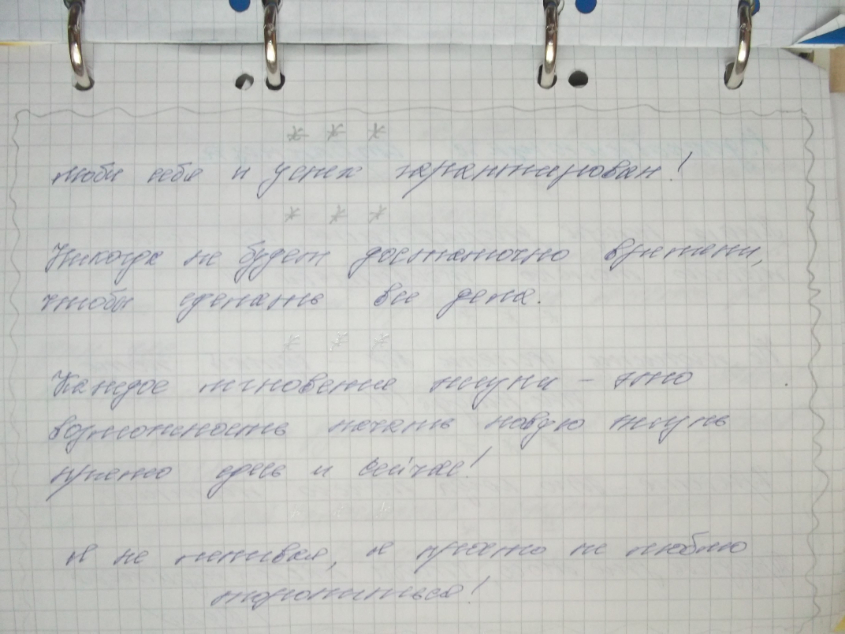 * * *
Люби себя и успех гарантирован!
* * *
Никогда не будет достаточно времени,
чтобы сделать все дела.
* * *
Каждое мгновение жизни - это
возможность начать новую жизнь
прямо здесь и сейчас!
Я не ленивая, я просто не люблю
торопиться!